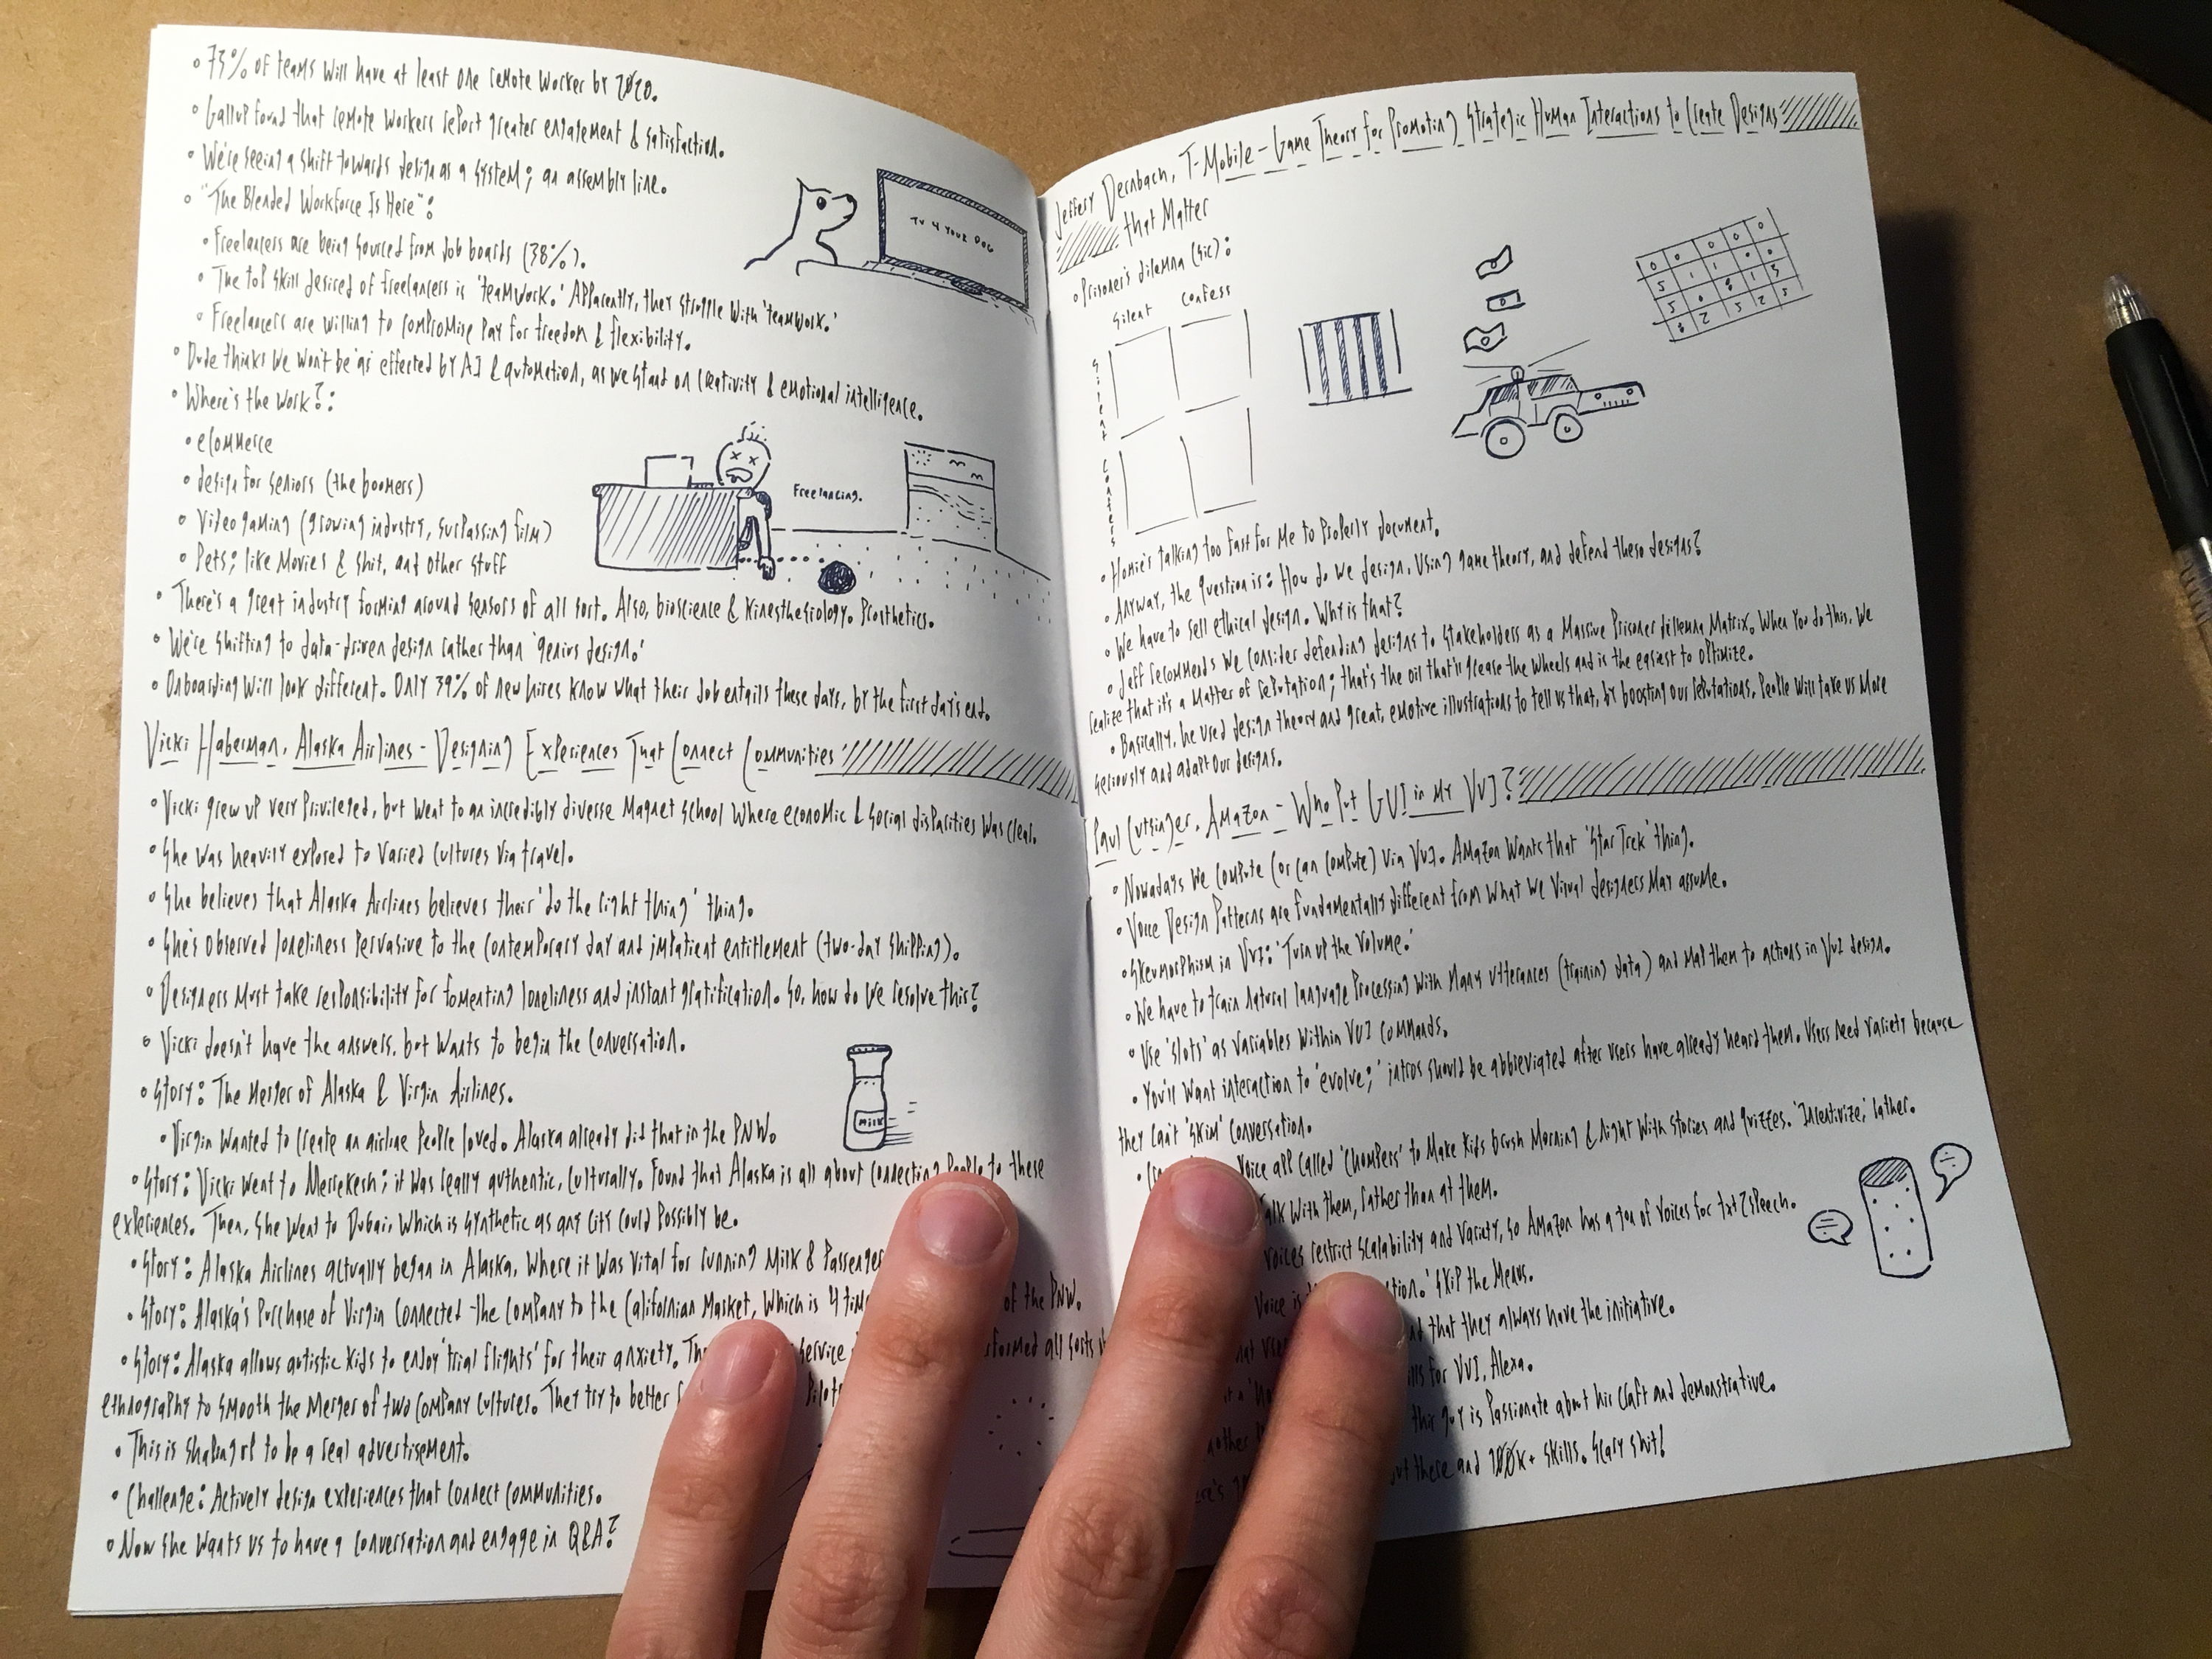 • 73% of teams will have at least one remote worker by 2020.
• Gallup found that remote workers report greater engagement & satisfaction.
• We're seeing a shift towards design as a system; an assembly line.
• "The Blended Workforce Is Here":
• Freelancers are being sourced from job boards (38%).
• The top skill desired of freelancers is 'teamwork.' Apparently, they struggle with 'teamwork.'
• Freelancers are willing to compromise pay for freedom & flexibility.
• Dude thinks we won't be as effected by AI & automation, as we stand on creativity & emotional intelligence.
• Where's the work?:
• eCommerce
• design for seniors (the boomers)
• Video gaming (growing industry, surpassing film)
• Pets; like movies & shit, and other stuff
TV 4 YOUR DOG
Freelancing.
• There's a great industry forming around sensors of all sort. Also, bioscience & kinesthesiology. Prosthetics.
• We're shifting to data-driven design rather than 'genius design.'
• Onboarding will look different. Only 39% of new hires know what their job entails these days, by the first day's end.
Vicki Haberman, Alaska Airlines - Designing Experiences That Connect Communities
• Vicki grew up very privileged, but went to an incredibly diverse magnet school where economic & social disparities was clear.
• She was heavily exposed to varied cultures via travel.
• She believes that Alaska Airlines believes their 'do the right thing' thing.
• She's observed loneliness pervasive to the contemporary day and impatient entitlement (two-day shipping).
• Designers must take responsibility for fomenting loneliness and instant gratification. So, how do we resolve this?
• Vicki doesn't have the answers, but wants to begin the conversation.
• Story: The merger of Alaska & Virgin Airlines.
• Virgin wanted to create an airline people loved. Alaska already did that in the PNW.
MILK
• Story: Vicki went to Merrekesh; it was really authentic, culturally. Found that Alaska is all about connecting people to these
experiences. Then, she went to Dubai, which is synthetic as any city could possibly be.
• Story: Alaska Airlines actually began in Alaska, where it was vital for running milk & passenger
• Story: Alaska's purchase of Virgin connected the company to the Californian market, which is 4 of the PNW.
• Story: Alaska allows autistic kids to enjoy 'trial flights' for their anxiety. service all sorts
ethnography to smooth the merger of two company cultures. They try to better
• This is shaping up to be a real advertisement.
• Challenge: Actively design experiences that connect communities.
• Now she wants us to have a conversation and engage in Q&A?
Jeffery Dernbach, T-Mobile - Game Theory for Promoting Strategic Human Interactions to Create Designs
that Matter
• Prisoner's dilemna (sic):
Silent Confess
Silent
Confess
0 0 0 0 0
5 1 1 0 0
• Homie's talking too fast for me to properly document.
• Anyway, the question is: How do we design, using game theory, and defend these designs?
• We have to sell ethical design. Why is that?
• Jeff recommends we consider defending designs to stakeholders as a massive prisoner dillemna matrix. When you do this, we
realize that it's a matter of reputation; that's the oil that'll grease the wheels and is the easiest to optimize.
• Basically, he used design theory and great, emotive illustrations to tell us that, by boosting our reputations, people will take us more
seriously and adapt our designs.
Paul Cutsinger, Amazon - Who Put GUI in my VUI?
• Nowadays we compute (or can compute) via VUI. Amazon wants that 'Star Trek' thing.
• Voice Design Patterns are fundamentally different from what we visual designers may assume.
• Skeumorphism in VUI: 'Turn up the volume.'
• We have to train natural language processing with many utterances (training data) and map them to actions in VUI design.
• Use 'slots' as variables within VUI commands.
• You'll want interaction to 'evolve;' intros should be abbreviated after users have already heard them. Users need variety because
they can't 'skim' conversation.
voice app called 'Chompers' to make kids brush morning & night with stories and quizzes. 'Incentivize,' rather.
with them, rather than at them.
voices restrict scalability and variety, so Amazon has a ton of voices for txt2speech.
Voice is Skip the menus.
that they always have the initiative.
for VUI, Alexa.
this guy is passionate about his craft and demonstrative.
there and 100K+ skills. Scary shit!